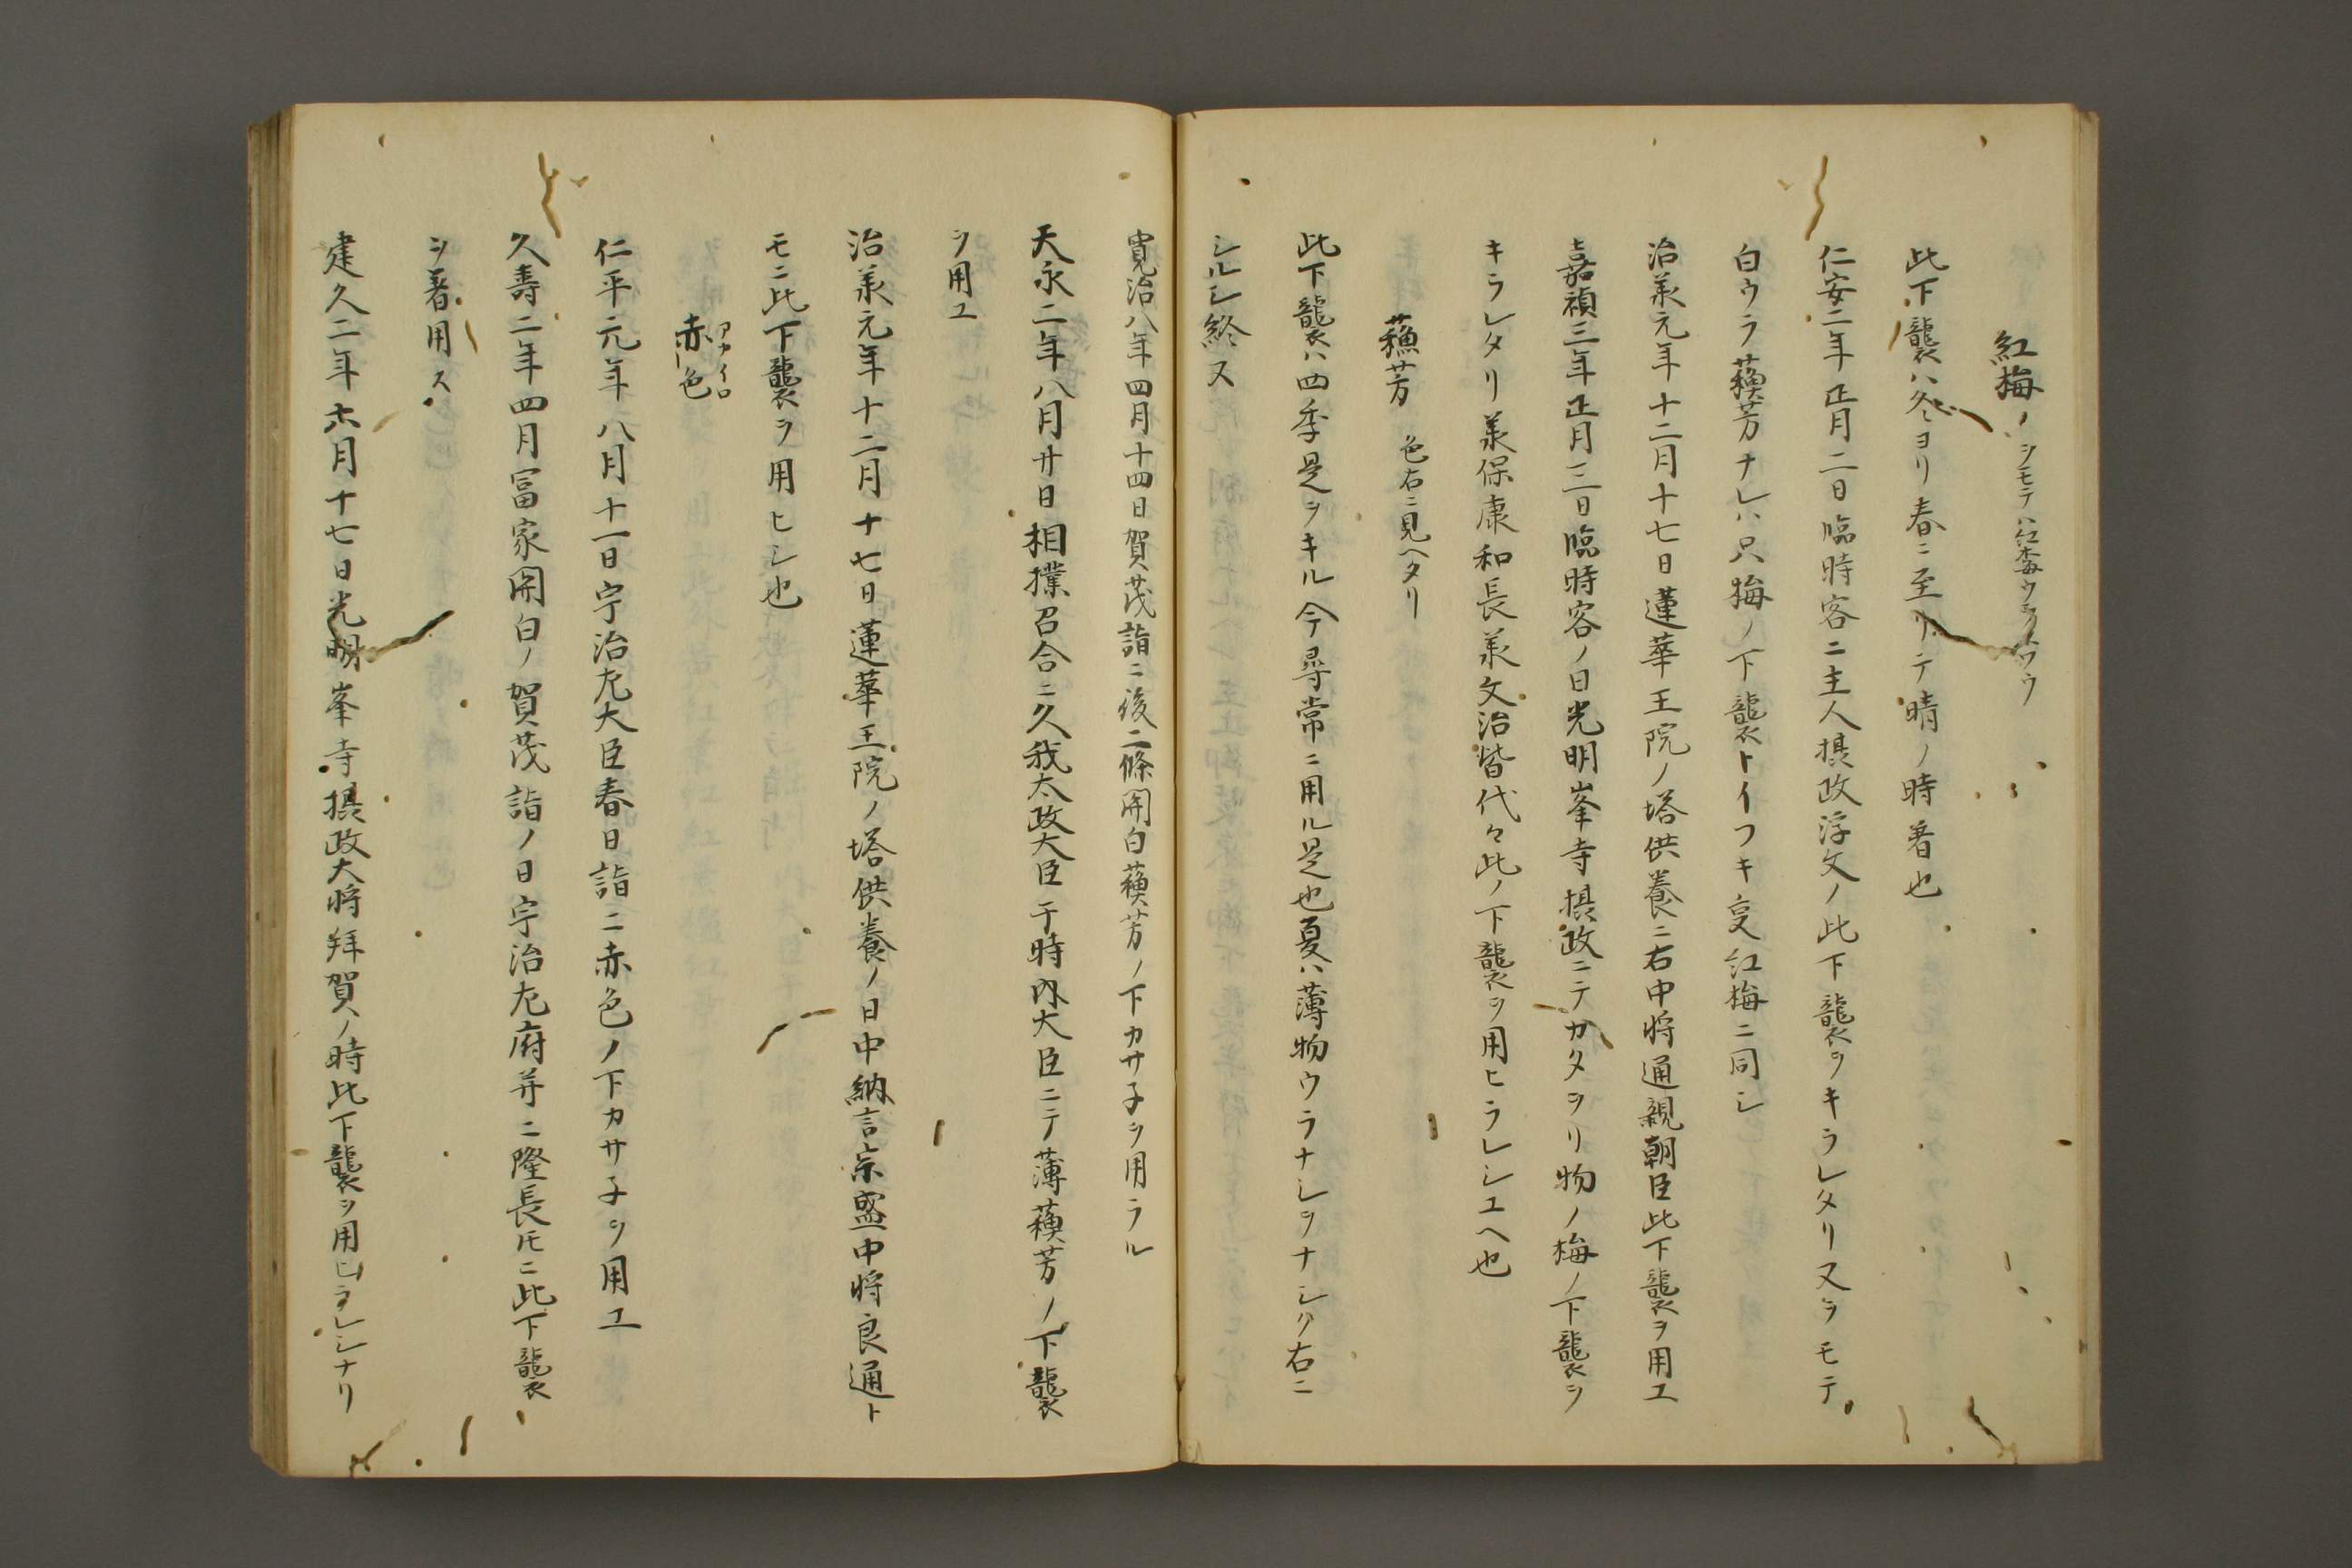 紅梅ノ ヲモテハ紅梅ウラハ
此下襲ハ冬ヨリ春ニ至リテ晴ノ時着也
仁安二年正月二日臨時客ニ主人摂政浮文ノ此下襲ヲキラレタリ又ヲモテ
白ウラ蘓芳ナレハ只梅ノ下襲トイフキ叓紅梅ニ同シ
治義元年十二月十七日蓮華王院ノ塔供養ニ右中将通親朝臣此下襲ヲ用ユ
嘉禎三年正月三日臨時客ノ日光明峯寺摂政ニテカタヲリ物ノ梅ノ下襲ヲ
キラレタリ義保康和長義文治皆代々此ノ下襲ヲ用ヒラレシユヘ也
蘓芳 色右ニ見ヘタリ
此下襲ハ四季是ヲキル今尋常ニ用ル是也夏ハ薄物ウラナシヲナシク右ニ
シルシ終ヌ
寛治八年四月十四日賀茂詣ニ後二條関白蘓芳ノ下カサ子ヲ用ラル
天永二年八月廿日相撲召合ニ久我太政大臣于時内大臣ニテ薄蘓芳ノ下襲
ヲ用ユ
治義元年十二月十七日蓮華王院ノ塔供養ノ日中納言宗盛中将良通ト
モニ此下襲ヲ用ヒシ也
赤色 アカイロ
仁平元年八月十一日宇治左大臣春日詣ニ赤色ノ下カサ子ヲ用ユ
久壽二年四月冨家関白ノ賀茂詣ノ日宇治左府并ニ隆長ヒニ此下襲
ヲ着用ス
建久二年六月十七日光明峯寺摂政大将拜賀ノ時此下襲ヲ用ヒラレシナリ